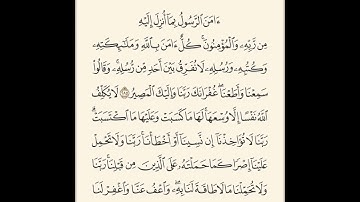 ءَامَنَ ٱلرَّسُولُ بِمَآ أُنزِلَ إِلَيْهِ
مِن رَّبِّهِۦ وَٱلْمُؤْمِنُونَ ۚ كُلٌّ ءَامَنَ بِٱللَّهِ وَمَلَـٰٓئِكَتِهِۦ
وَكُتُبِهِۦ وَرُسُلِهِۦ لَا نُفَرِّقُ بَيْنَ أَحَدٍ مِّن رُّسُلِهِۦ ۚ وَقَالُوا۟
سَمِعْنَا وَأَطَعْنَا ۖ غُفْرَانَكَ رَبَّنَا وَإِلَيْكَ ٱلْمَصِيرُ ۝ لَا يُكَلِّفُ
ٱللَّهُ نَفْسًا إِلَّا وُسْعَهَا ۚ لَهَا مَا كَسَبَتْ وَعَلَيْهَا مَا ٱكْتَسَبَتْ ۗ
رَبَّنَا لَا تُؤَاخِذْنَآ إِن نَّسِينَآ أَوْ أَخْطَأْنَا ۚ رَبَّنَا وَلَا تَحْمِلْ
عَلَيْنَآ إِصْرًا كَمَا حَمَلْتَهُۥ عَلَى ٱلَّذِينَ مِن قَبْلِنَا ۚ رَبَّنَا
وَلَا تُحَمِّلْنَا مَا لَا طَاقَةَ لَنَا بِهِۦ ۖ وَٱعْفُ عَنَّا وَٱغْفِرْ لَنَا